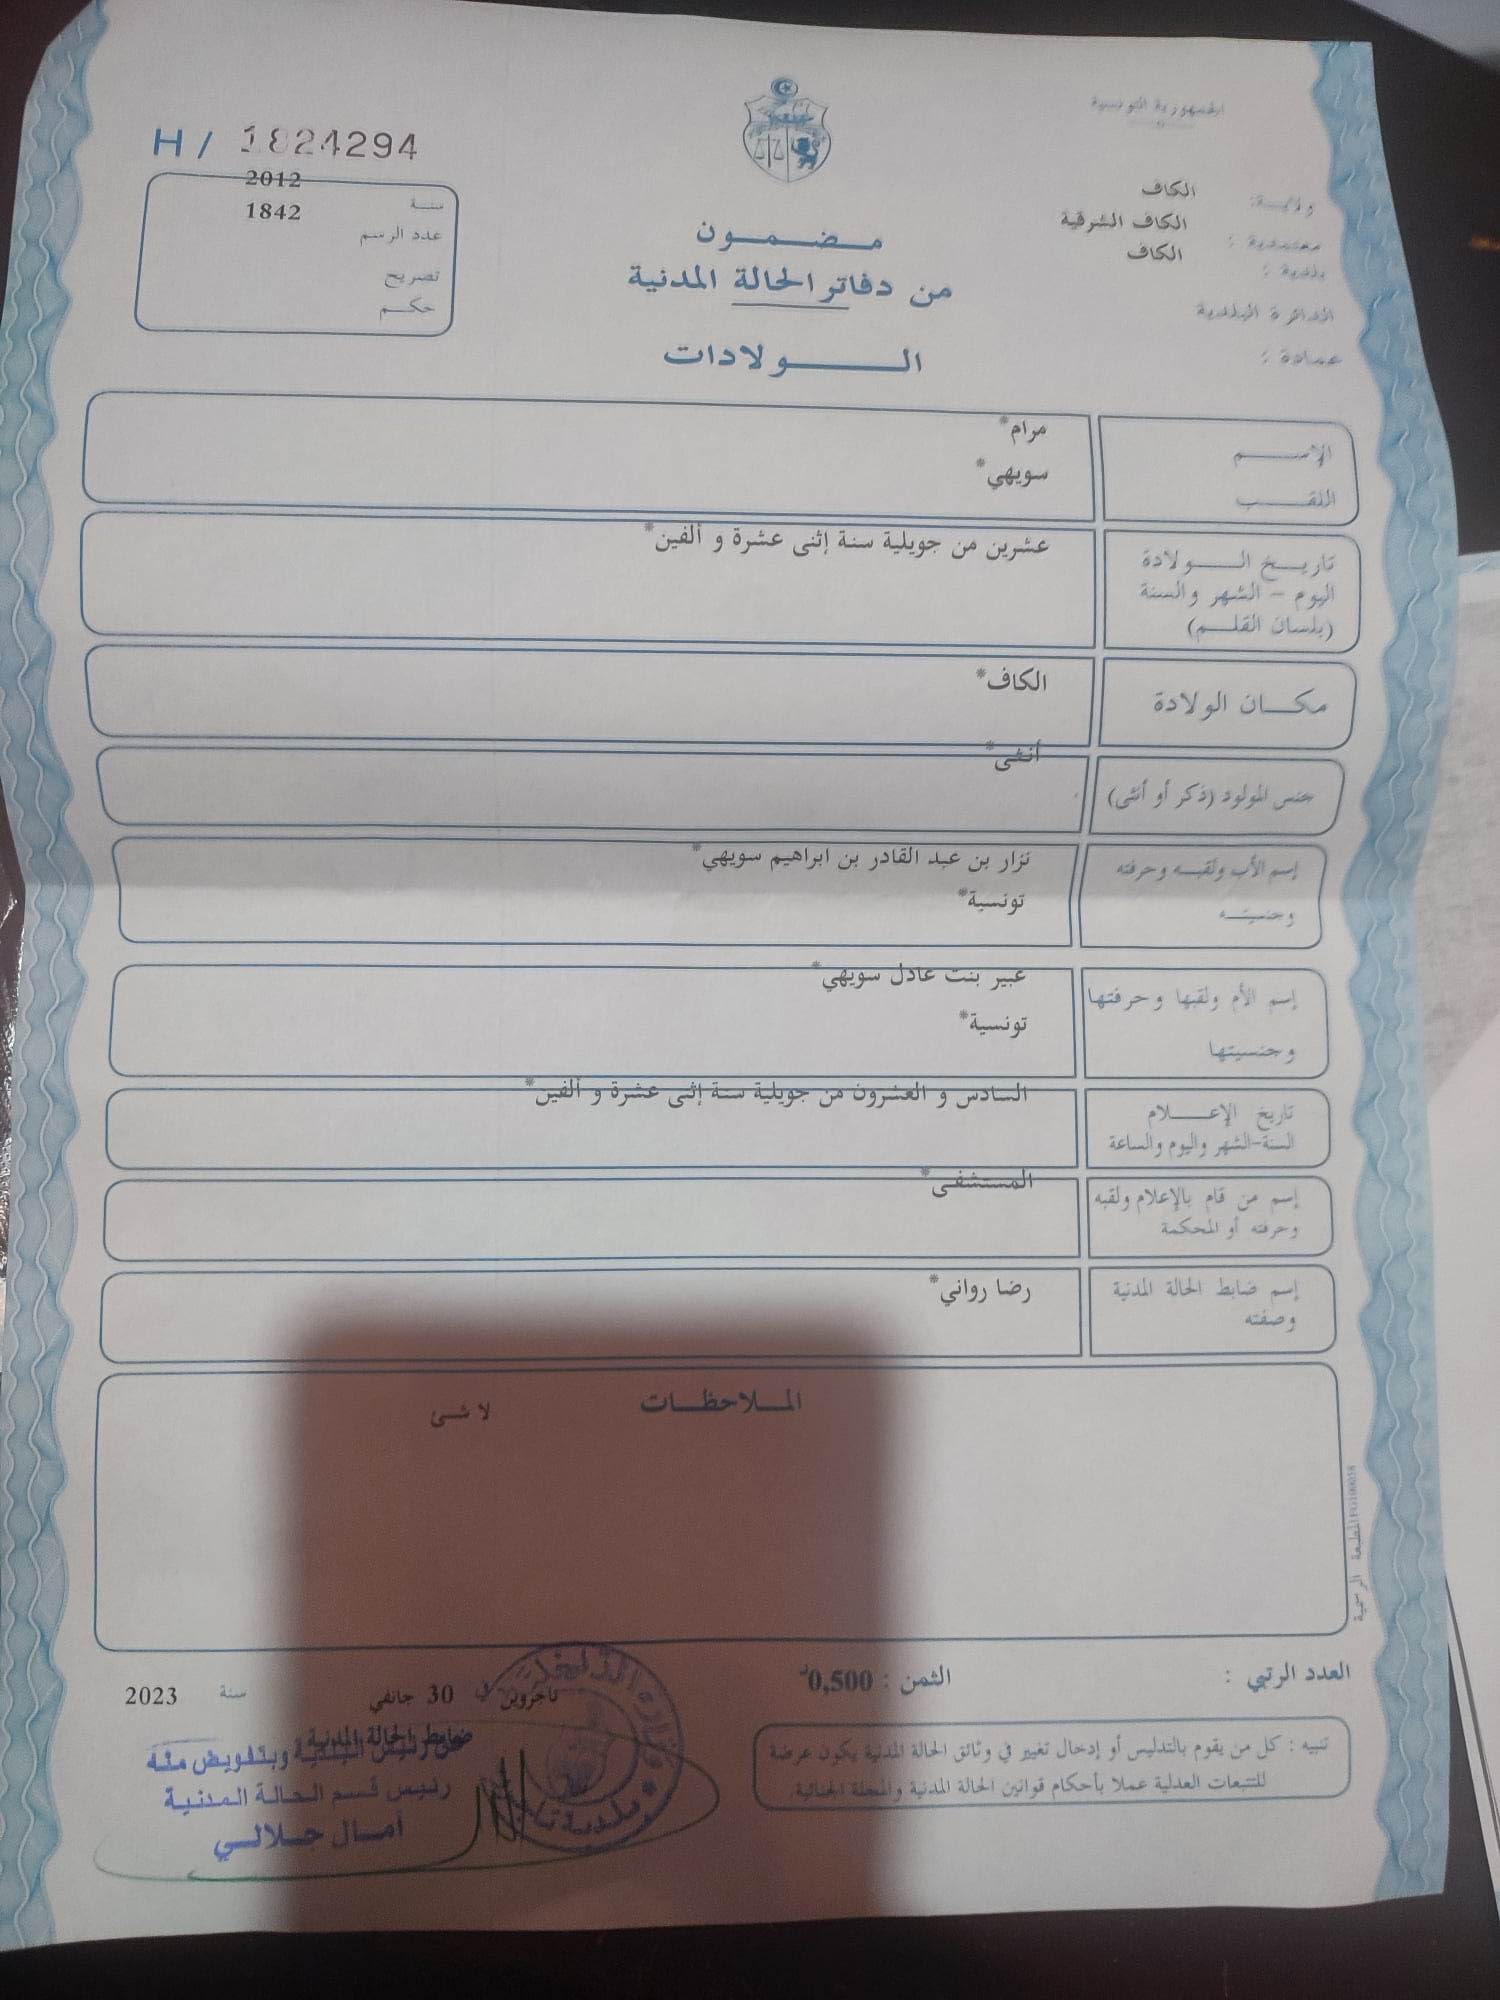 الجمهورية التونسية
H / 1824294
ولاية: الكاف
معتمدية : الكاف الشرقية
بلدية : الكاف
الدائرة البلدية
عمادة :
سنة 2012
عدد الرسم 1842
تصريح
حكم
مضمون
من دفاتر الحالة المدنية
الولادات
الإسم مرام*
اللقب سويهي*
تاريخ الولادة عشرين من جويلية سنة إثنى عشرة و ألفين*
اليوم - الشهر والسنة
(بلسان القلم)
مكان الولادة الكاف*
جنس المولود (ذكر أو أنثى) أنثى*
إسم الأب ولقبه وحرفته نزار بن عبد القادر بن ابراهيم سويهي*
وجنسيته تونسية*
إسم الأم ولقبها وحرفتها عبير بنت عادل سويهي*
وجنسيتها تونسية*
تاريخ الإعلام السادس و العشرون من جويلية سنة إثنى عشرة و ألفين*
السنة-الشهر واليوم والساعة
إسم من قام بالإعلام ولقبه المستشفى*
وحرفته أو المحكمة
إسم ضابط الحالة المدنية رضا رواني*
وصفته
الملاحظات لا شئ
المطبعة الرسمية
العدد الرتبي :
الثمن : 0,500د
تاجروين في 30 جانفي سنة 2023
ضابط الحالة المدنية
عن رئيس البلدية وبتفويض منه
رئيس قسم الحالة المدنية
أمال جلالي
تنبيه : كل من يقوم بالتدليس أو إدخال تغيير في وثائق الحالة المدنية يكون عرضة
للتتبعات العدلية عملا بأحكام قوانين الحالة المدنية والمجلة الجنائية.